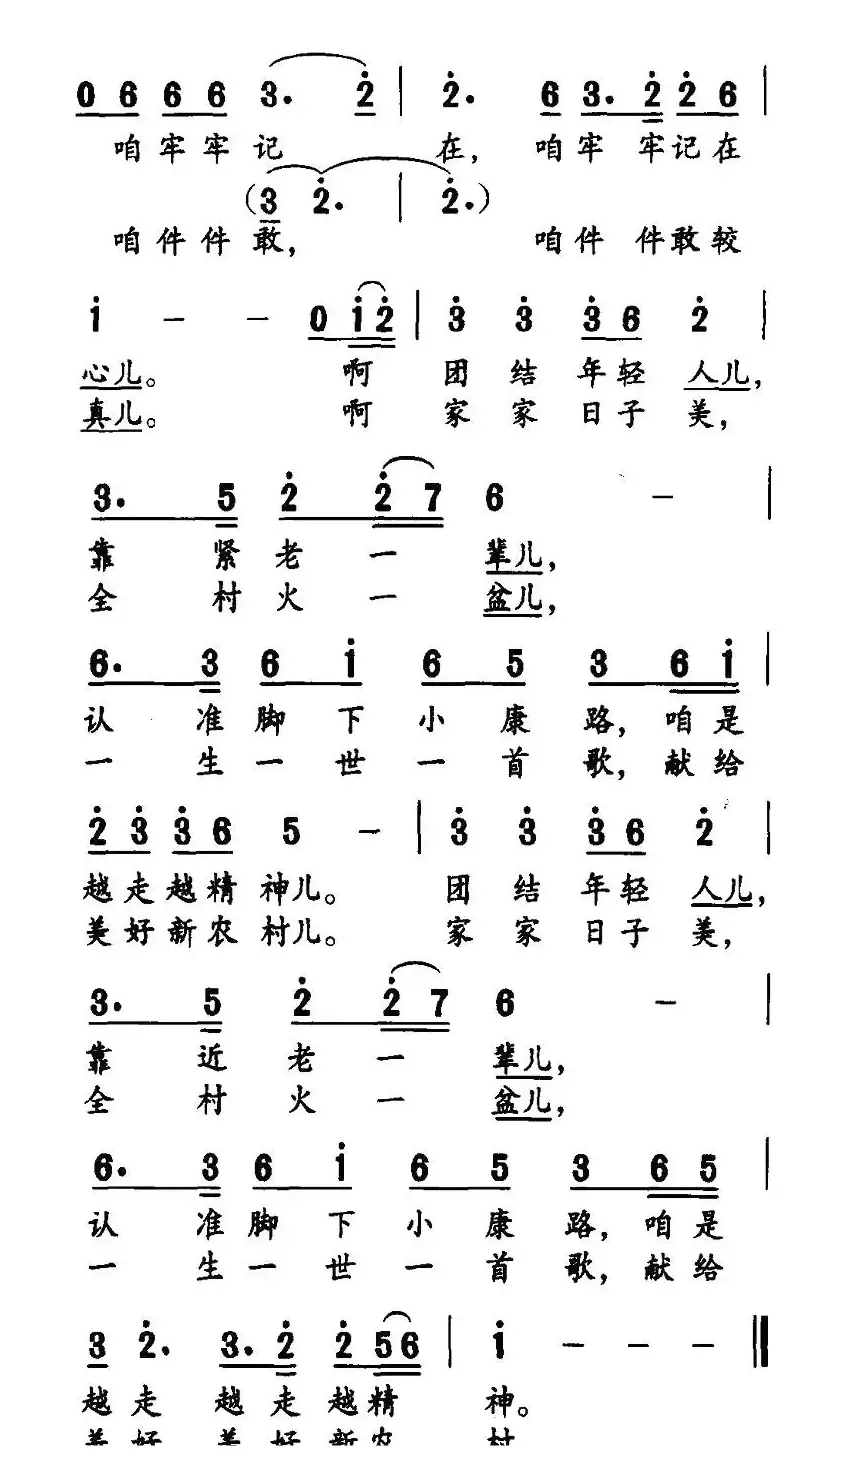 0 6 6 6 3. 2 | 2. 6 3. 2 2 6 |
咱牢牢记 在，咱牢 牢记在
(3 2. | 2.)
咱件件敢， 咱件 件敢较
1 － － 0 1 2 | 3 3 3 6 2 |
心儿。 啊 团结年轻人儿，
真儿。 啊 家家日子美，
3. 5 2 2 7 6 － |
靠紧老一辈儿，
全村火一盆儿，
6. 3 6 1 6 5 3 6 1 |
认准脚下小康路，咱是
一生一世一首歌，献给
2 3 3 6 5 － | 3 3 3 6 2 |
越走越精神儿。 团结年轻人儿，
美好新农村儿。 家家日子美，
3. 5 2 2 7 6 － |
靠近老一辈儿，
全村火一盆儿，
6. 3 6 1 6 5 3 6 5 |
认准脚下小康路，咱是
一生一世一首歌，献给
3 2. 3. 2 2 5 6 | 1 － － － ‖
越走 越走越精 神。
美好 美好新农 村